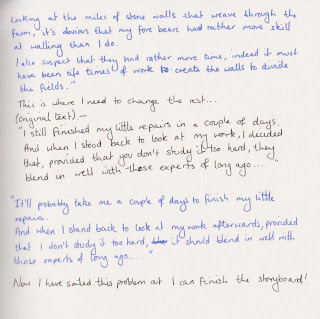 Looking at the miles of stone walls that weave through the
farm, it's obvious that my fore bears had rather more skill
at walling than I do.
I also suspect that they had rather more time, indeed it must
have been life times of work to create the walls to divide
the fields."
This is where I need to change the rest....
(original text).—
"I still finished my little repairs in a couple of days.
And when I stood back to look at my work, I decided
that, provided that you don't study it too hard, they
blend in well with those experts of long ago...."
"It'll probably take me a couple of days to finish my little
repairs.
And when I stand back to look at my work afterwards, provided
that I don't study it too hard, it should blend in well with
those experts of long ago...."
Now I have sorted this problem out I can finish the storyboard!